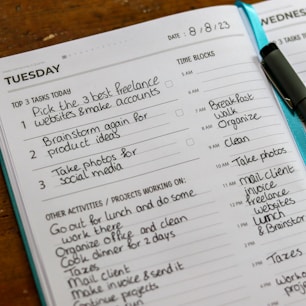 DATE : 8/8/23
TUESDAY
WEDNES
TOP 3 TASKS TODAY
TIME BLOCKS
1 Pick the 3 best freelance
websites & make accounts
2 Brainstorm again for
product ideas
3 Take photos for
social media
OTHER ACTIVITIES / PROJECTS WORKING ON:
Go out for lunch and do some
work there
Organize office and clean
Cook dinner for 2 days
Taxes
Mail client
make invoice & send it
Continue projects
Breakfast
walk
Organize
Clean
Take photos
mail client
invoice
freelance
websites
Lunch
& Brainstorm
Taxes
Work on